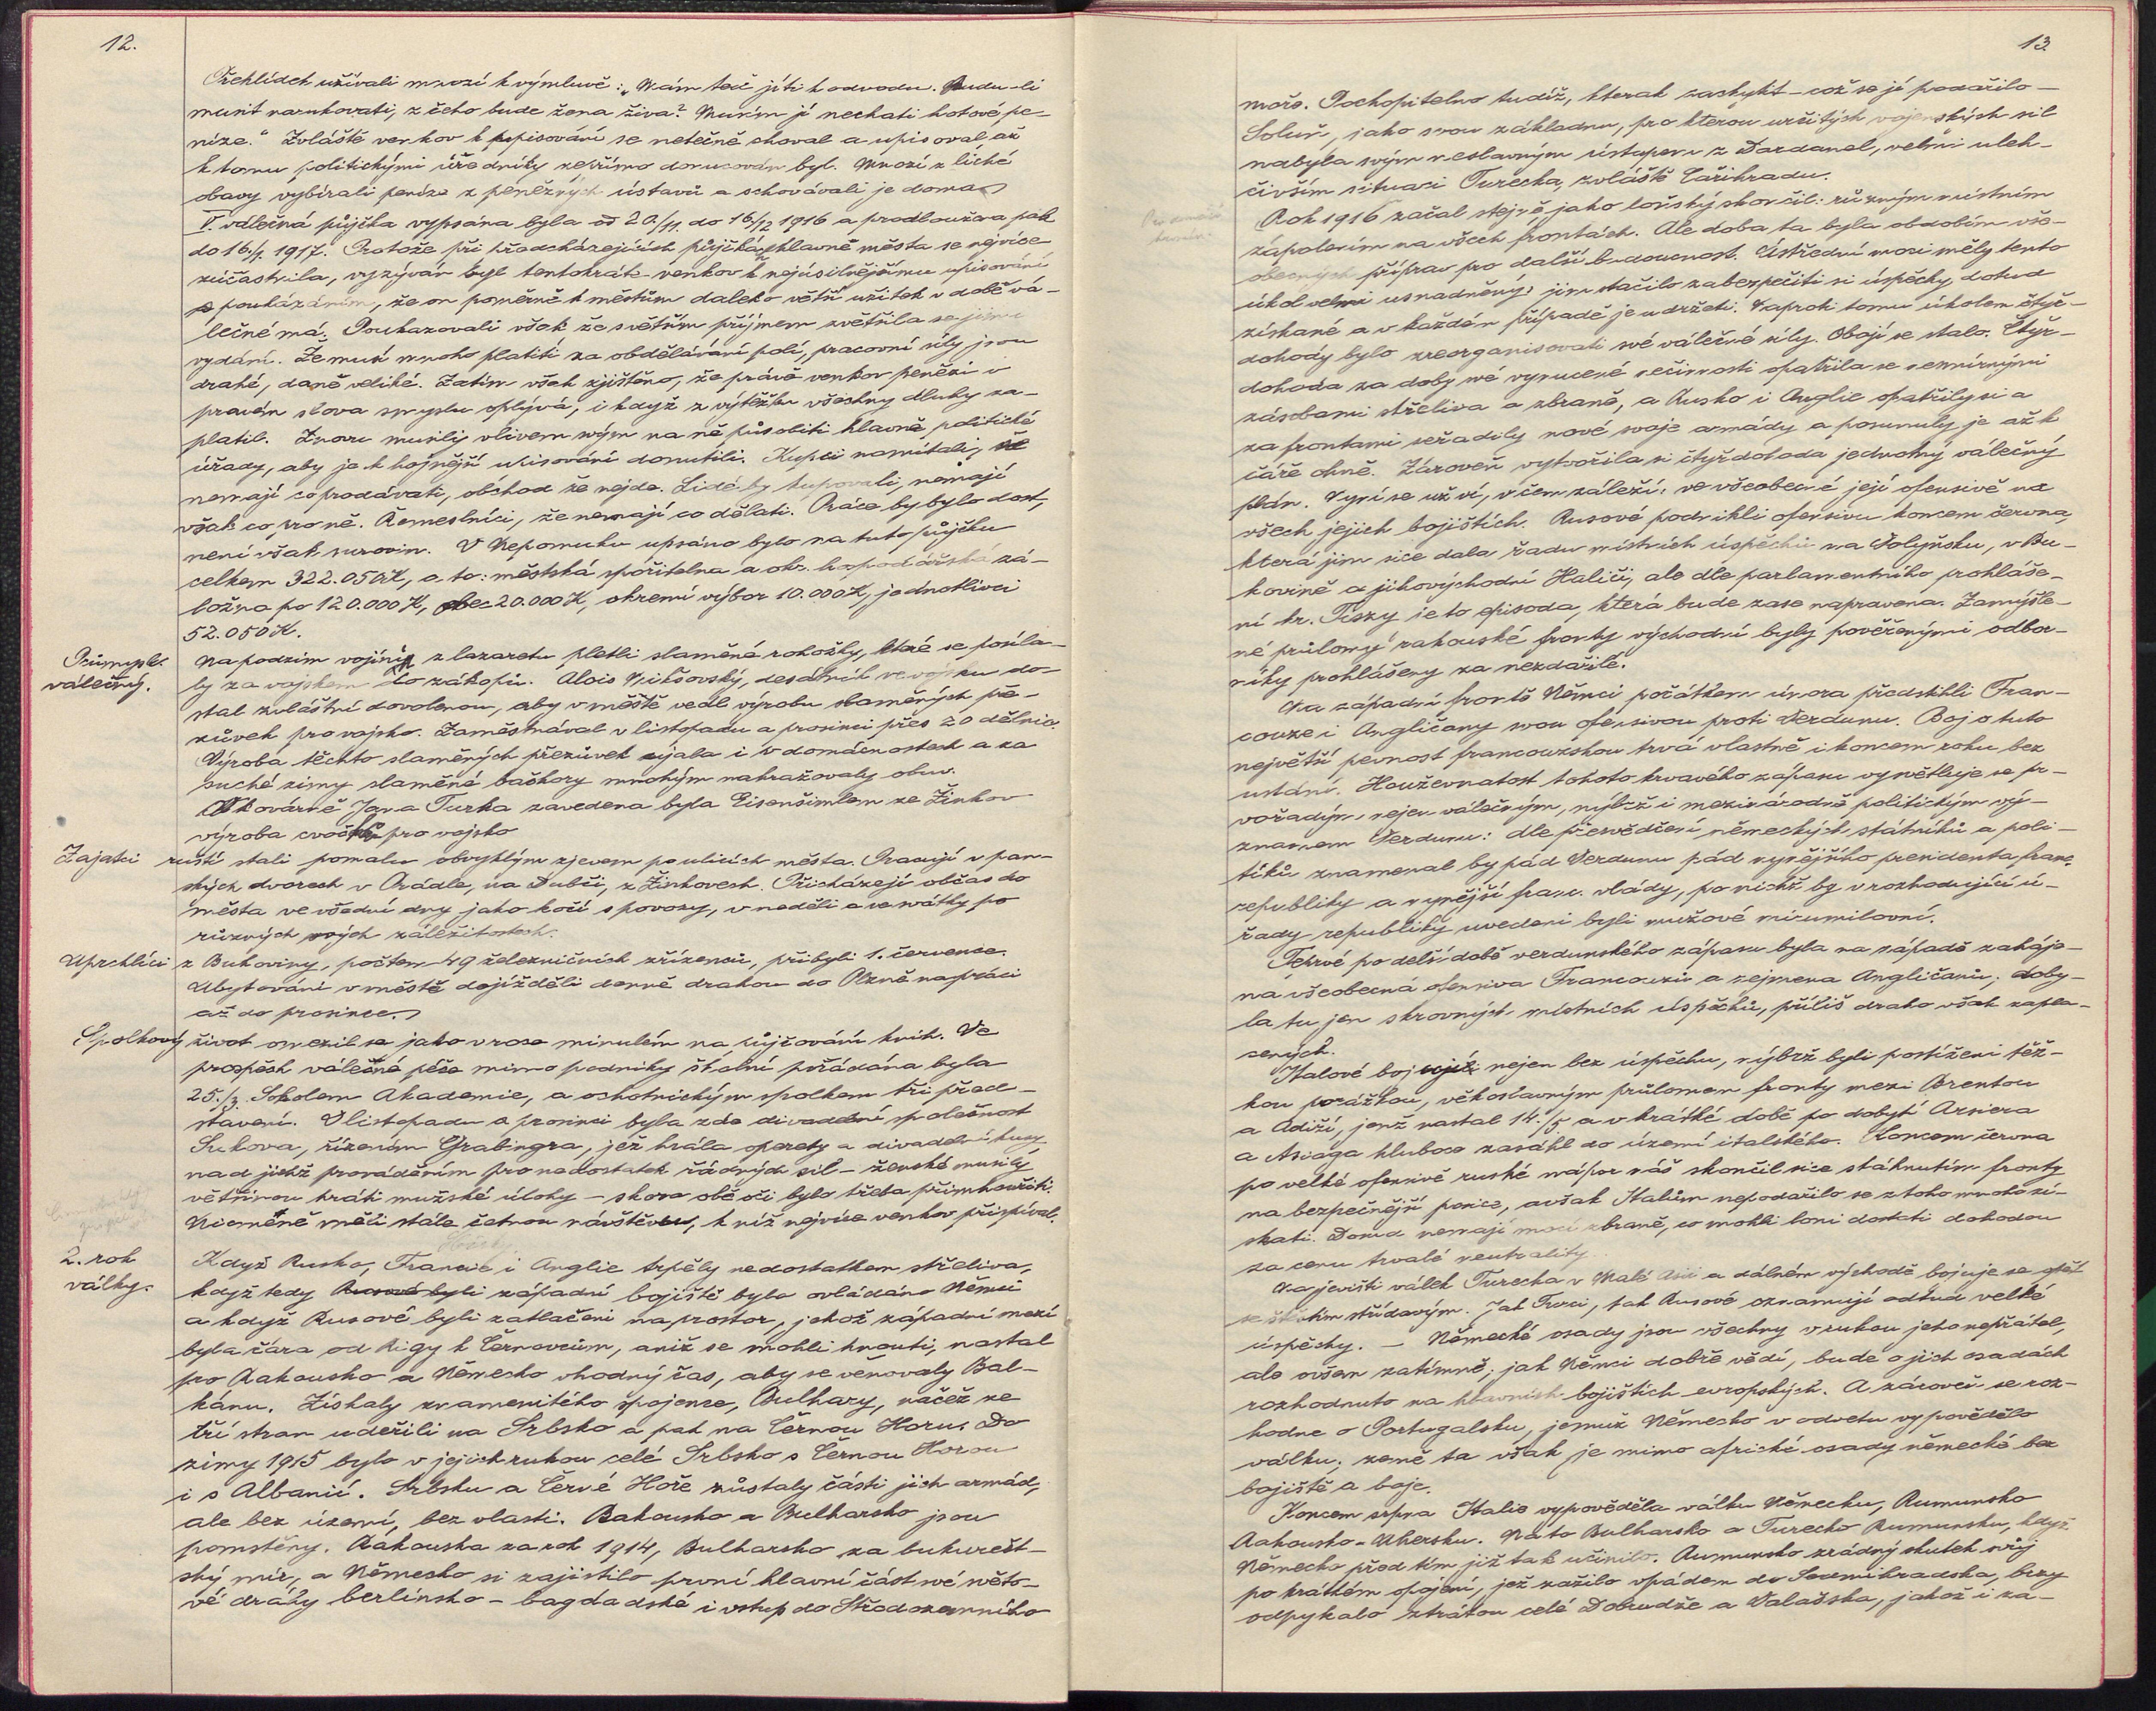 12.
Přehlídek užívali mnozí k výmluvě: „Mám teď jíti k odvodu. Budu-li
musit narukovati, z čeho bude žena živa? Musím jí nechati hotové pe-
níze." Zvláště venkov k upisování se netečně choval a upisoval, až
k tomu politickými úředníky přímo donucován byl. Mnozí z liché
obavy vybírali peníze z peněžných ústavů a schovávali je doma.
V. válečná půjčka vypsána byla od 20./11. do 16./12 1916 a prodloužena pak
do 16./1. 1917. Protože při předcházejících půjčkách hlavně města se nejvíce
zúčastnila, vyzýván byl tentokráte venkov k nejúsilnějšímu upisování
s poukázáním, že on poměrně k městům daleko větší užitek v době vá-
lečné má. Poukazovali však že s větším příjmem zvětšila se jim i
vydání. Že musí mnoho platiti za obdělávání polí, pracovní síly jsou
drahé, daně veliké. Zatím však zjištěno, že právě venkov penězi v
pravém slova smyslu oplývá, i když z výtěžku všechny dluhy za-
platil. Znovu musily vlivem svým na ně působiti hlavně politické
úřady, aby je k hojnější upisování donutili. Kupci namítali, že
nemají co prodávati, obchod že nejde. Lidé by kupovali, nemají
však co pro ně. Řemeslníci, že nemají co dělati. Práce by bylo dost,
není však surovin. V Nepomuku upsáno bylo na tuto půjčku
celkem 322.050 K, a to: městská spořitelna a okr. hospodářská zá-
ložna po 120.000 K, obec 20.000 K, okresní výbor 10.000 K, jednotlivci
52.050 K.
Průmysl válečný.
Na podzim vojíni z lazaretu pletli slaměné rohožky, které se posíla-
ly za vojskem do zákopů. Alois Mikšovský, desátník ve vojsku do-
stal zvláštní dovolenou, aby v městě vedl výrobu slaměných pře-
zůvek pro vojsko. Zaměstnával v listopadu a prosinci přes 20 dělnic.
Výroba těchto slaměných přezůvek ujala i v domácnostech a za
suché zimy slaměné bačkory mnohým nahražovaly obuv.
V kovárně Jana Turka zavedena byla Eisenšimlem ze Žinkov
výroba cvočků pro vojsko
Zajatci ruští stali pomalu obvyklým zjevem po ulicích města. Pracují v pan-
ských dvorech v Prádle, na Dubči, z Žinkovech. Přicházejí občas do
města ve všední dny jako kočí s povozy, v neděli a ve svátky po
různých svých záležitostech.
Uprchlíci z Bukoviny, počtem 49 železničních zřízenců, přibyli 1. července.
Ubytováni v městě dojížděli denně drahou do Plzně na práci
až do prosince.
Spolkový život omezil se jako v roce minulém na půjčování knih. Ve
prospěch válečné péče mimo podniky školní pořádána byla
25./3. Sokolem Akademie, a ochotnickým spolkem tři před-
stavení. V listopadu a prosinci byla zde divadelní společnost
Sukova, řízením Grabingra, jež hrála operety a divadelní kusy,
nad jichž prováděním pro nedostatek řádných sil – ženské musily
většinou hráti mužské úlohy – skoro obě oči bylo třeba přimhouřiti.
Nicméně měli stále četnou návštěvu, k níž nejvíce venkov přispíval.
2. rok války.
Když Rusko, Francie i Anglie trpěly nedostatkem střeliva,
když tedy Rusové byli západní bojiště bylo ovládáno Němci
a když Rusové byli zatlačeni na prostor, jehož západní mezí
byla čára od Rigy k Černovcům, aniž se mohli hnouti, nastal
pro Rakousko a Německo vhodný čas, aby se věnovaly Bal-
kánu. Získaly znamenitého spojence, Bulhary, načež ze
tří stran udeřili na Srbsko a pak na Černou Horu. Do
zimy 1915 bylo v jejich rukou celé Srbsko s Černou Horou
i s Albanií. Srbsku a Černé Hoře zůstaly části jich armád,
ale bez území, bez vlasti. Rakousko a Bulharsko jsou
pomstěny. Rakousko za rok 1914, Bulharsko za bukurešt-
ský mír, a Německo si zajistilo první hlavní část své světo-
vé dráhy berlínsko – bagdadské i vstup do Středozemního
13.
moře. Pochopitelno tudíž, kterak zachytit – což se jí podařilo –
Soluň, jako svou základnu, pro kterou určitých vojenských sil
nabyla svým neslavným ústupem z Dardanel, velmi uleh-
čivším situaci Turecka, zvláště Cařihradu.
Rok 1916 začal stejně, jako loňský skončil: různým místním
zápolením na všech frontách. Ale doba ta byla obdobím vše-
obecných příprav pro další budoucnost. Ústřední moci měly tento
úkol velmi usnadněný: jim stačilo zabezpečiti si úspěchy dotud
získané a v každém případě je udržeti. Naproti tomu úkolem čtyř-
dohody bylo zreorganisovati své válečné síly. Obojí se stalo. Čtyř-
dohoda za doby své vynucené nečinnosti opatřila se nesmírnými
zásobami střeliva a zbraně, a Rusko i Anglie opatřily si a
za frontami seřadily nové svoje armády a posunuly je až k
čáře ohně. Zároveň vytvořila si čtyřdohoda jednotný válečný
plán. Nyní se už ví, v čem záleží: ve všeobecné její ofensivě na
všech jejich bojištích. Rusové podnikli ofensivu koncem června,
která jim sice dala řadu místních úspěchů na Volyňsku, v Bu-
kovině a jihovýchodní Haliči, ale dle parlamentního prohláše-
ní hr. Tiszy je to episoda, která bude zase napravena. Zamýšle-
né průlomy rakouské fronty východní byly pověřenými odbor-
níky prohlášeny za nezdařilé.
Na západní frontě Němci počátkem února předstihli Fran-
couze i Angličany svou ofensivou proti Verdunu. Boj o tuto
největší pevnost francouzskou trvá vlastně i koncem roku, bez
ustání. Houževnatost tohoto krvavého zápasu vysvětluje se pr-
vořadým, nejen válečným, nýbrž i mezinárodně politickým vý-
znamem Verdunu: dle přesvědčení německých státníků a poli-
tiků znamenal by pád Verdunu pád nynějšího presidenta franc.
republiky a nynější franc. vlády, po nichž by v rozhodující ú-
řady republiky uvedeni byli mužové mírumilovní.
Teprvé po delší době verdunského zápasu byla na západě zaháje-
na všeobecná ofensiva Francouzů a zejmena Angličanů; doby-
la tu jen skrovných místních úspěchů, příliš draho však zapla-
cených.
Italové bojují nejen bez úspěchu, nýbrž byli postiženi těž-
kou porážkou, věkoslavným průlomem fronty mezi Brentou
a Adiží, jenž nastal 14./5 a v krátké době po dobytí Arsiera
a Asiaga hluboce zasáhl do území italského. Koncem června
po velké ofensivě ruské nápor náš skončil sice stáhnutím fronty
na bezpečnější posice, avšak Italům nepodařilo se z toho mnoho zí-
skati. Dosud nemají mocí zbraně, co mohli loni dostati dohodou
za cenu trvalé neutrality.
Na jevišti válek Turecka v Malé Asii a dálném východě bojuje se opět
se štěstím střídavým. Jak Turci, tak Rusové oznamují odtud velké
úspěchy. – Německé osady jsou všechny v rukou jeho nepřátel,
ale ovšem zatímně; jak Němci dobře vědí, bude o jich osadách
rozhodnuto na hlavních bojištích evropských. A zároveň se roz-
hodne o Portugalsku, jemuž Německo v odvetu vypovědělo
válku; země ta však je mimo africké osady německé bez
bojiště a boje.
Koncem srpna Italie vypověděla válku Německu, Rumunsko
Rakousko-Uhersku. Na to Bulharsko a Turecko Rumunsku, když
Německo před tím již tak učinilo. Rumunsko zrádný skutek svůj
po krátkém opojení, jež zažilo vpádem do Sedmihradska, brzy
odpykalo ztrátou celé Dobrudže a Valašska, jakož i za-